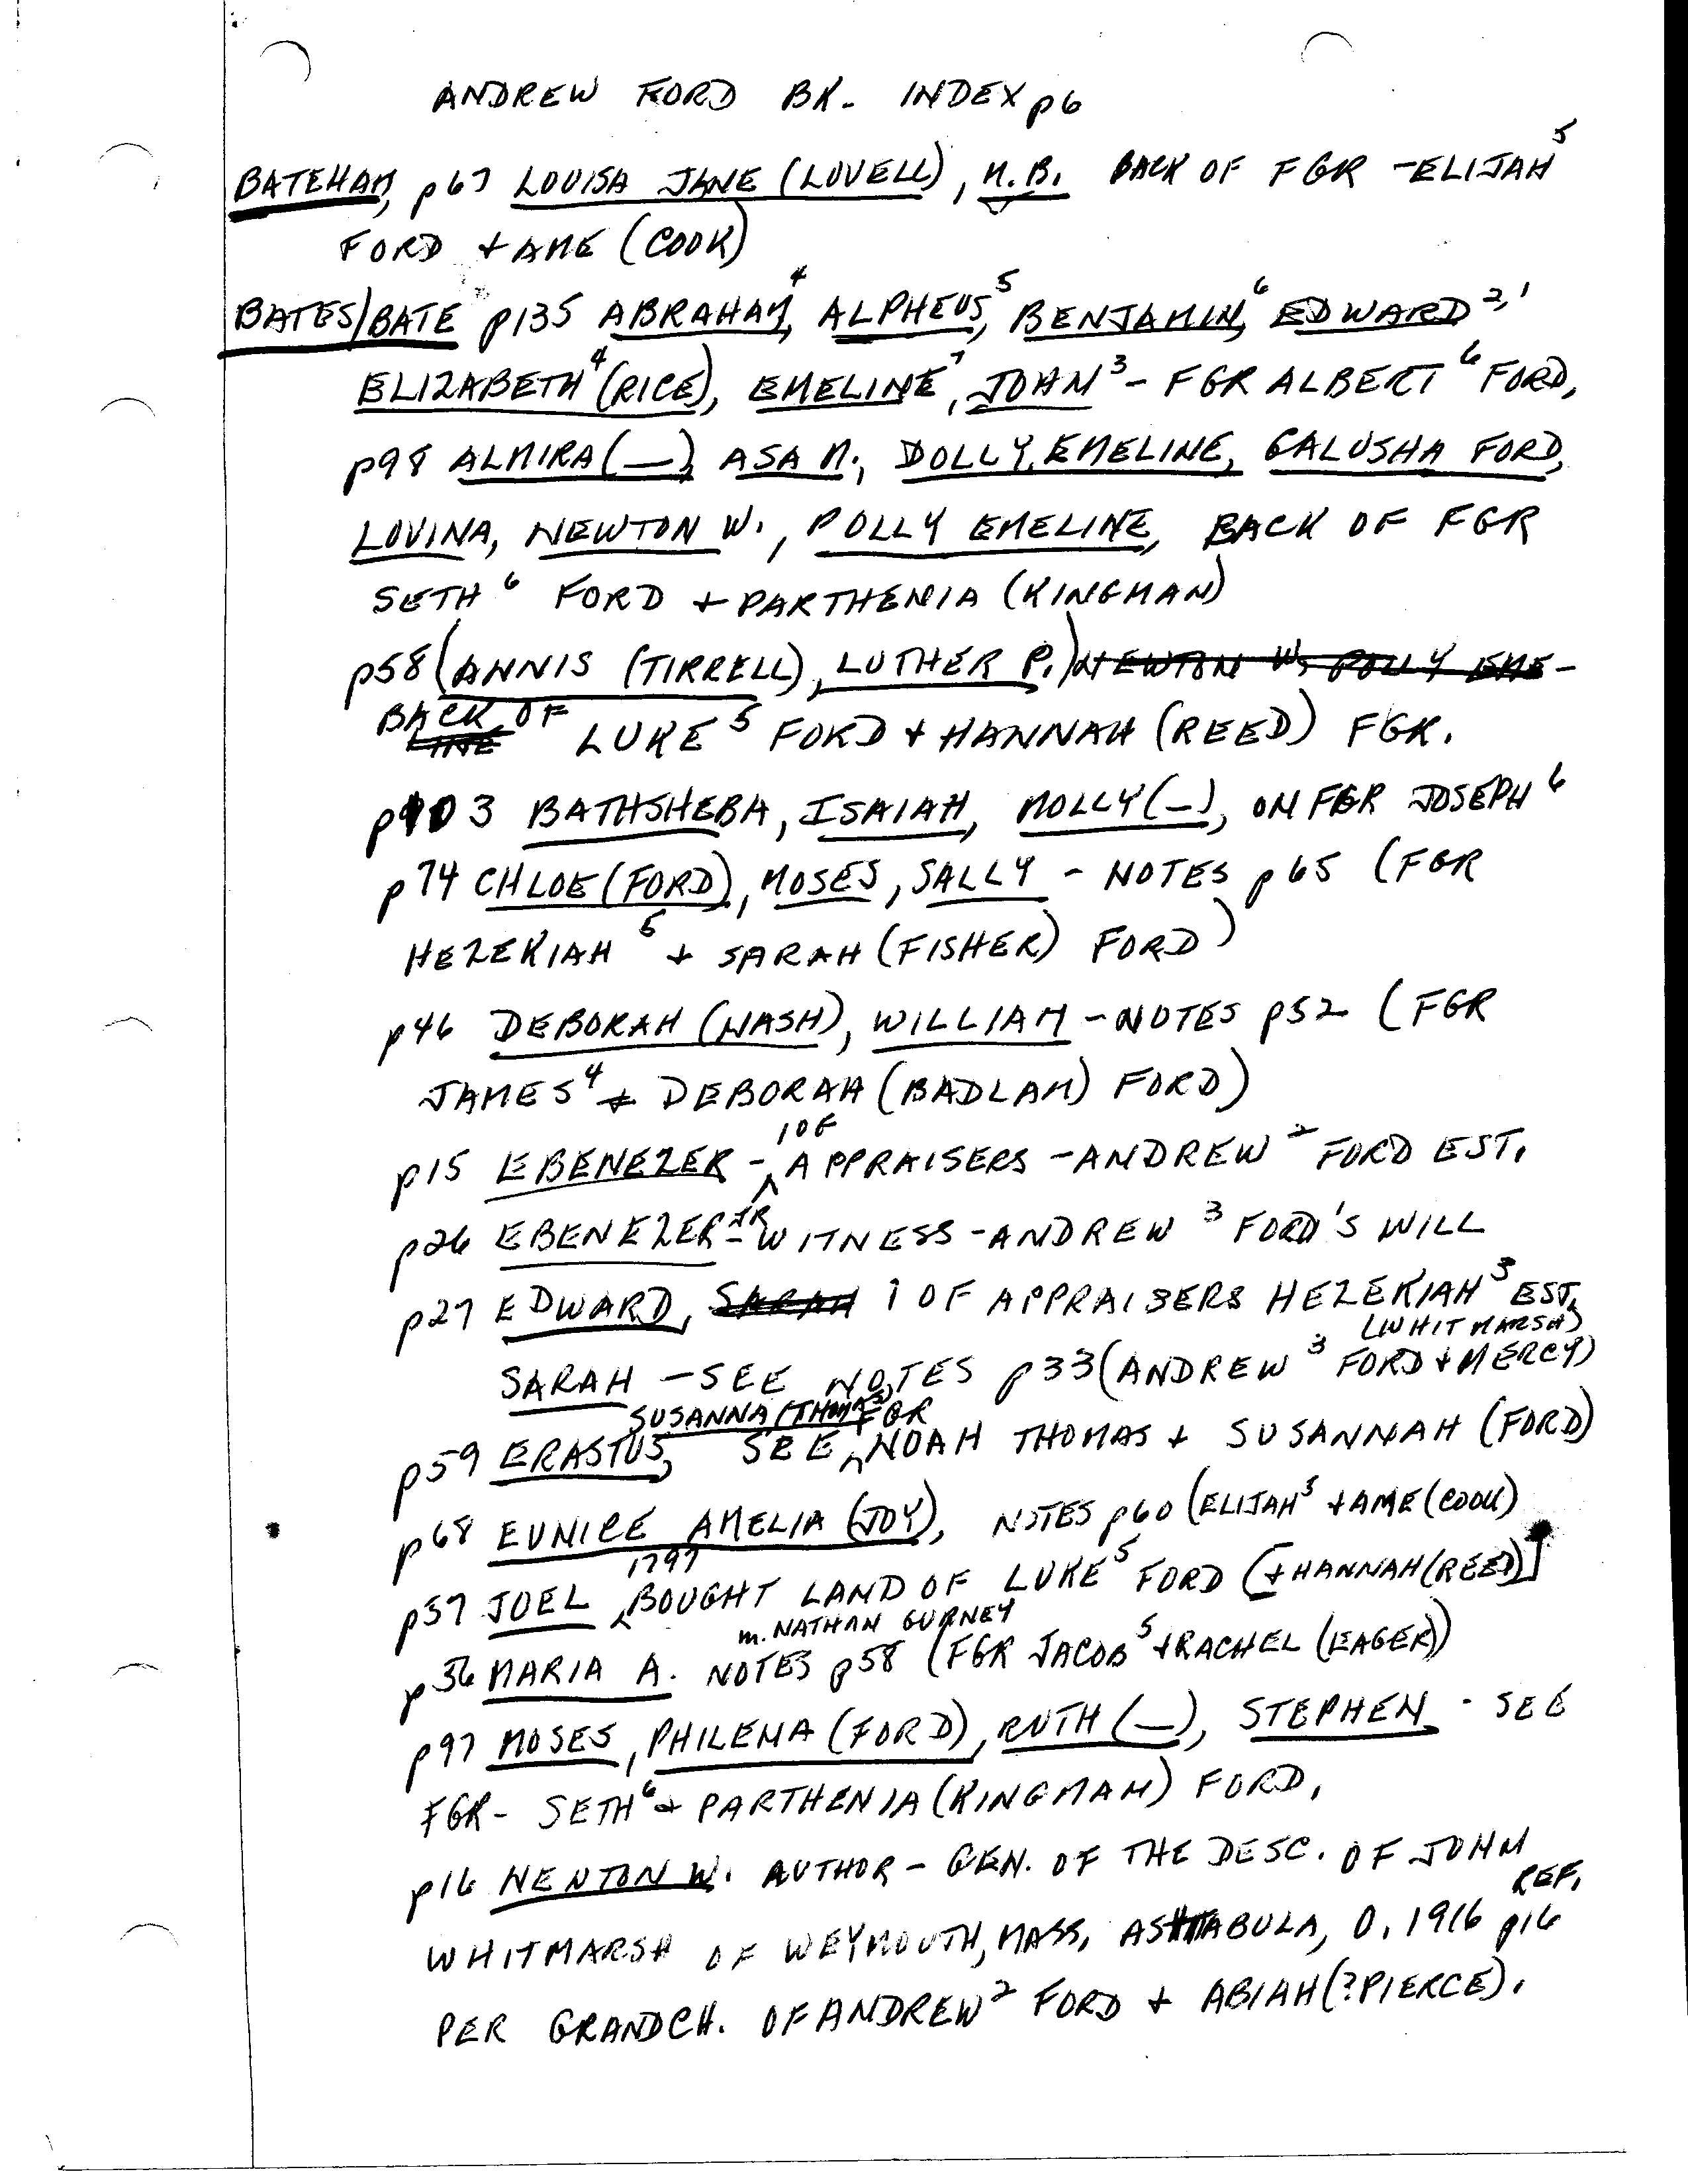 ANDREW FORD BK. INDEX p6
BATEHAM, p67 LOUISA JANE (LOVELL), M.B. BACK OF FGR - ELIJAH⁵
FORD + AME (COOK)
BATES/BATE p135 ABRAHAM⁴, ALPHEUS⁵, BENJAMIN⁶, EDWARD²,¹
ELIZABETH⁴ (RICE), EMELINE⁷, JOHN³ - FGR ALBERT⁶ FORD,
p98 ALMIRA (—), ASA M., DOLLY, EMELINE, GALUSHA FORD,
LOVINA, NEWTON W., POLLY EMELINE, BACK OF FGR
SETH⁶ FORD + PARTHENIA (KINGMAN)
p58 (ANNIS (TIRRELL), LUTHER P.) NEWTON W, POLLY EME-
BACK OF LINE LUKE⁵ FORD + HANNAH (REED) FGR.
p103 BATHSHEBA, ISAIAH, MOLLY (—), ON FGR JOSEPH⁶
p74 CHLOE (FORD), MOSES, SALLY - NOTES p65 (FGR
HEZEKIAH⁵ + SARAH (FISHER) FORD)
p46 DEBORAH (NASH), WILLIAM - NOTES p52 (FGR
JAMES⁴ + DEBORAH (BADLAM) FORD)
p15 EBENEZER - 1 OF APPRAISERS - ANDREW² FORD EST.
p26 EBENEZER JR - WITNESS - ANDREW³ FORD'S WILL
p27 EDWARD, SARAH 1 OF APPRAISERS HEZEKIAH³ EST.
SARAH - SEE NOTES p33 (ANDREW³ FORD + MERCY (WHITMARSH))
p59 ERASTUS, SUSANNA (THOMAS) SEE FGR NOAH THOMAS + SUSANNAH (FORD)
p68 EUNICE AMELIA (JOY), NOTES p60 (ELIJAH⁵ + AME (COOK)
p57 JOEL 1797 BOUGHT LAND OF LUKE⁵ FORD [+ HANNAH (REED)]
p36 MARIA A. m. NATHAN GURNEY NOTES p58 (FGR JACOB⁵ + RACHEL (EAGER))
p97 MOSES, PHILENA (FORD), RUTH (—), STEPHEN - SEE
FGR - SETH⁶ + PARTHENIA (KINGMAN) FORD.
p16 NEWTON W. AUTHOR - GEN. OF THE DESC. OF JOHN
WHITMARSH OF WEYMOUTH, MASS, ASHTABULA, O. 1916 REF. p16
PER GRANDCH. OF ANDREW² FORD + ABIAH (?PIERCE).